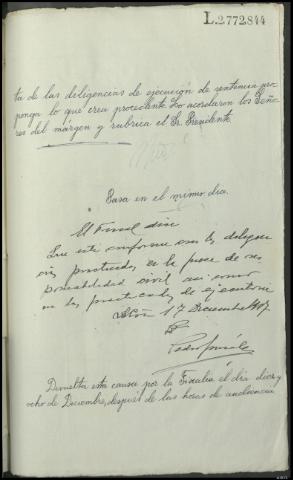 L.2772844
ta de las deligencias de ejecución de sentencia pro-
ponga lo que crea procedente. Lo acordaron los Seño-
res del margen y rubrica el Sr. Presidente.
Pasa en el mismo dia.
El Fiscal dice
Que está conforme con las diligen
cias practicadas en la pieza de res
ponsabilidad civil asi como
en las practicadas de ejecutoria
17 Diciembre 1917
Pedro
Devuelta esta causa por la Fiscalía el dia diez y
ocho de Diciembre, despues de las horas de audiencia